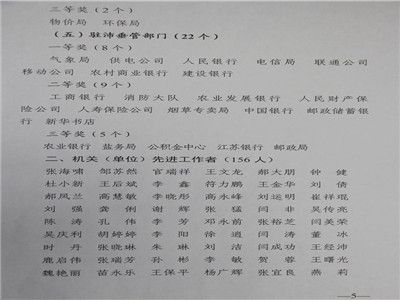 三等奖（2个）
物价局 环保局
（五）驻沛垂管部门（22个）
一等奖（8个）
气象局 供电公司 人民银行 电信局 联通公司
移动公司 农村商业银行 建设银行
二等奖（9个）
工商银行 消防大队 农业发展银行 人民财产保
险公司 人寿保险公司 烟草专卖局 中国银行 邮政储蓄银
行 新华书店
三等奖（5个）
农业银行 盐务局 公积金中心 江苏银行 邮政局
二、机关（单位）先进工作者（156人）
张海啸 邹苏然 官瑞祥 王文龙 郝大朋 钟健
杜小新 王后斌 李鑫 符力鹏 王金华 刘倩
郝凤兰 高慧敏 李晓彤 高永峰 刘运明 崔祥琨
刘强 龚俐 谢辉 张猛 闫非 吴传亮
陈涛 孔伟 李芳 邓永前 张裕芝 闫美荣
吴庆利 胡婷婷 李阳 徐逍 闫涛 董冰
时丹 张晓琳 朱琳 刘洁 闫成功 王经沛
鹿启伟 张瑞芳 孙彬 李敏 贺蓉 王曙光
魏艳丽 苗永乐 王保平 杨广辉 张宜良 燕莉
—5—